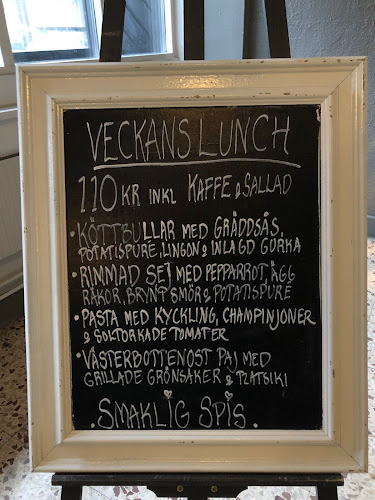 VECKANS LUNCH
110 KR INKL KAFFE & SALLAD
• KÖTTBULLAR MED GRÄDDSÅS,
POTATISPURÉ, LINGON & INLAGD GURKA
• RIMMAD SEJ MED PEPPARROT, ÄGG
RÄKOR, BRYNT SMÖR & POTATISPURÉ
• PASTA MED KYCKLING, CHAMPINJONER
& SOLTORKADE TOMATER
• VÄSTERBOTTENOST PAJ MED
GRILLADE GRÖNSAKER & TZATSIKI
. SMAKLIG SPIS .